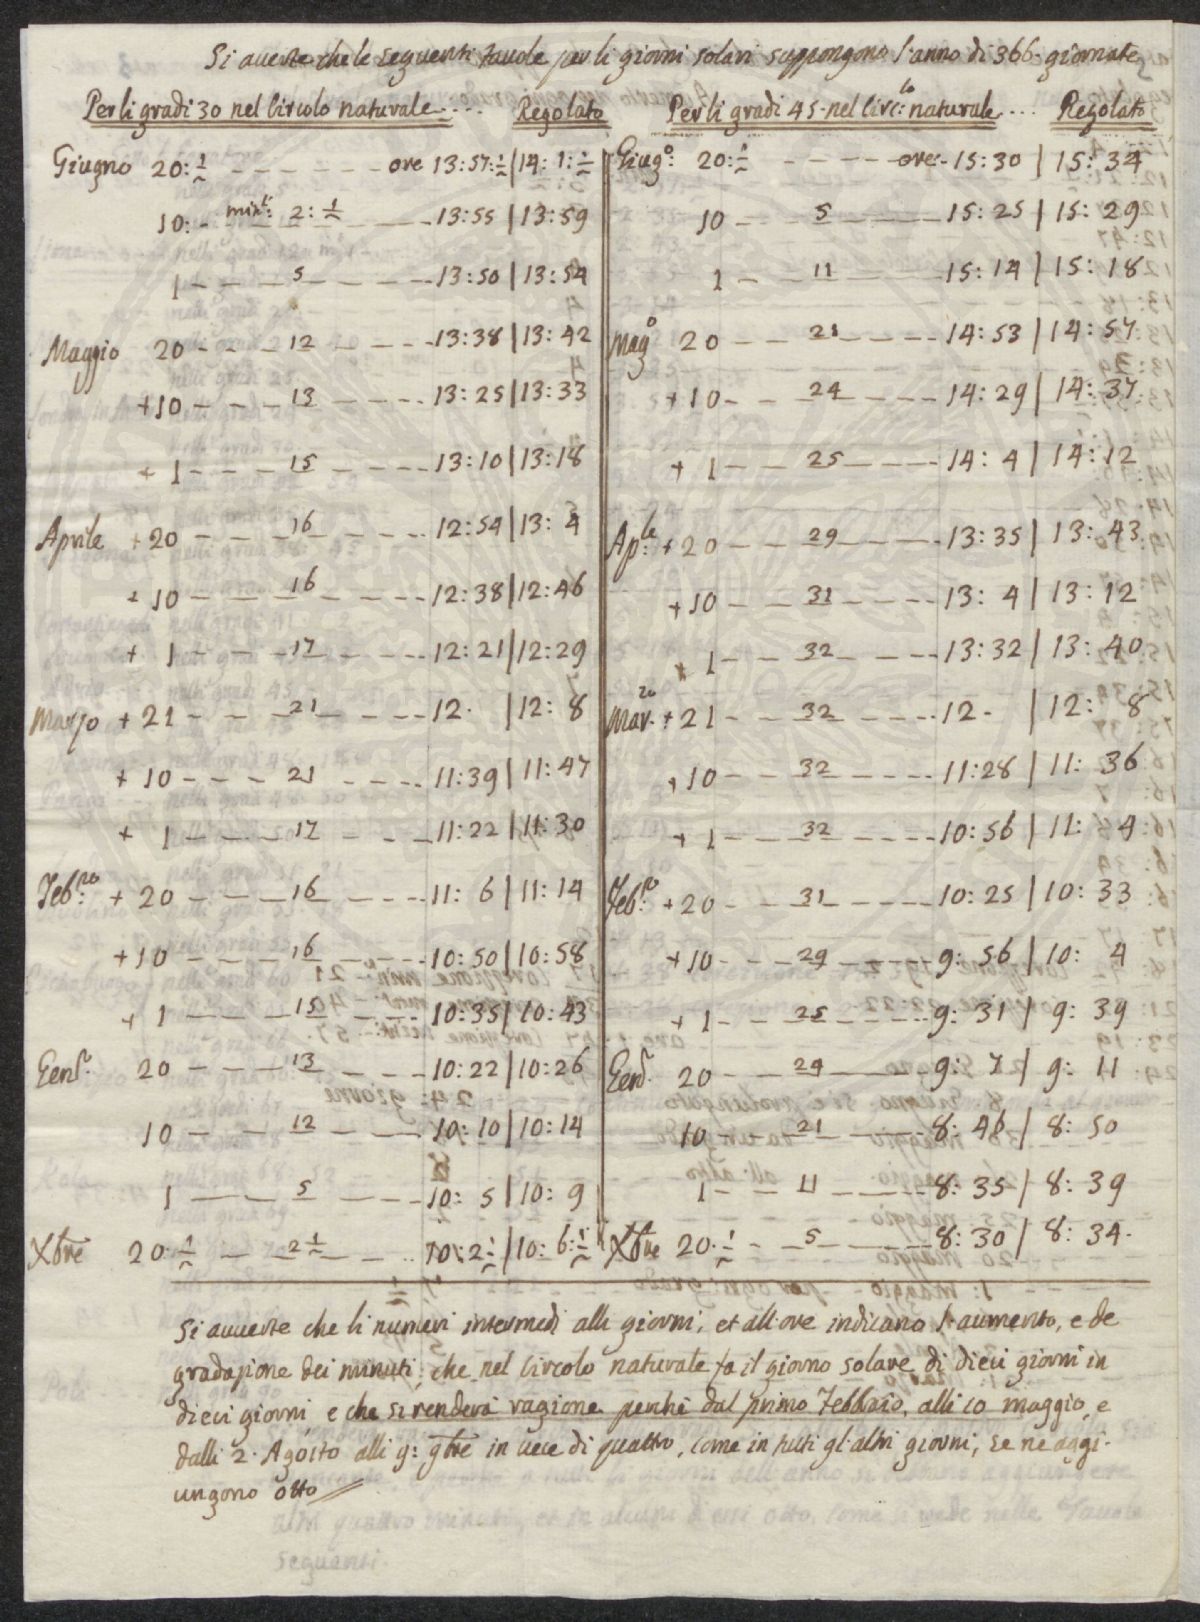 Si averte che le seguenti tavole per li giorni solari suppongono l'anno di 366 giornate
Per li gradi 30 nel Circolo naturale ... Regolato Per li gradi 45 nel Circ:lo naturale ... Regolato
Giugno 20:½ - - - - - - ore 13:57:½ | 14:1:½ Giug:o 20:½ - - - - - ore 15:30 | 15:34
10: - min:i 2:½ - - - 13:55 | 13:59 10 - - 5 - - - 15:25 | 15:29
1 - - - 5 - - - 13:50 | 13:54 1 - - 11 - - - 15:14 | 15:18
Maggio 20 - - - 12 - - - 13:38 | 13:42 Mag:o 20 - - 21 - - - 14:53 | 14:57
+ 10 - - - 13 - - - 13:25 | 13:33 + 10 - - 24 - - - 14:29 | 14:37
+ 1 - - - 15 - - - 13:10 | 13:18 + 1 - - 25 - - - 14:4 | 14:12
Aprile + 20 - - - 16 - - - 12:54 | 13:4 Ap:le + 20 - - 29 - - - 13:35 | 13:43
+ 10 - - - 16 - - - 12:38 | 12:46 + 10 - - 31 - - - 13:4 | 13:12
+ 1 - - - 17 - - - 12:21 | 12:29 + 1 - - 32 - - - 13:32 | 13:40
Marzo + 21 - - - 21 - - - 12. | 12:8 Mar.zo + 21 - - 32 - - - 12 - | 12:8
+ 10 - - - 21 - - - 11:39 | 11:47 + 10 - - 32 - - - 11:28 | 11:36
+ 1 - - - 17 - - - 11:22 | 11:30 + 1 - - 32 - - - 10:56 | 11:4
Feb:ro + 20 - - - 16 - - - 11:6 | 11:14 Feb:ro + 20 - - 31 - - - 10:25 | 10:33
+ 10 - - - 16 - - - 10:50 | 10:58 + 10 - - 29 - - - 9:56 | 10:4
+ 1 - - - 15 - - - 10:35 | 10:43 + 1 - - 25 - - - 9:31 | 9:39
Gen:r 20 - - - 13 - - - 10:22 | 10:26 Gen:r 20 - - 24 - - - 9:7 | 9:11
10 - - - 12 - - - 10:10 | 10:14 10 - - 21 - - - 8:46 | 8:50
1 - - - 5 - - - 10:5 | 10:9 1 - - 11 - - - 8:35 | 8:39
Xbre 20:½ - 2½ - - - 10:2½ | 10:6:½ Xbre 20.½ - - 5 - - - 8:30 | 8:34.
Si avverte che li numeri intermedi alli giorni, et all'ore indicano l'aumento, e de
gradazione dei minuti, che nel Circolo naturale fa il giorno solare di dieci giorni in
dieci giorni e che si renderà ragione perchè dal primo Febbraio, alli 10 maggio, e
dalli 2. Agosto alli 9: 9bre in vece di quattro, come in tutti gl'altri giorni, se ne aggi-
ungono otto